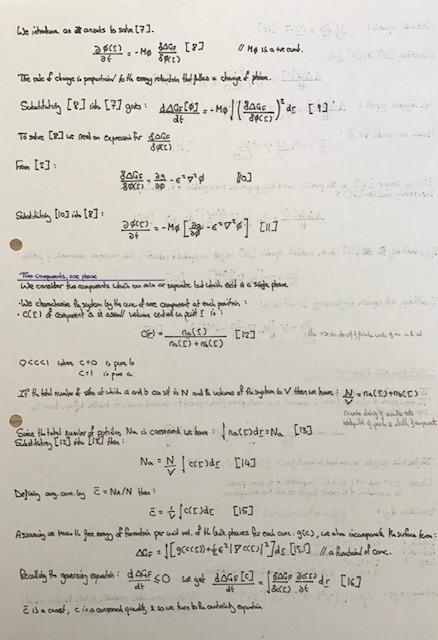 We introduce an ansatz to solve [7].
∂φ(r)/∂t = -Mφ δΔGF/δφ(r) [8] // Mφ is a +ve const.
The rate of change is proportional to the energy that follows a change of phase.
Substituting [8] into [7] gives: dΔGF[φ]/dt = -Mφ ∫(δΔGF/δφ(r))² dr [9]
To solve [8] we need an expression for δΔGF/δφ(r)
From [3]:
δΔGF/δφ(r) = ∂g/∂φ - ε²∇²φ [10]
Substituting [10] into [8]:
∂φ(r)/∂t = -Mφ[∂g/∂φ - ε²∇²φ] [11]
Two components, one phase
We consider two components which can mix or separate but which exist in a single phase
• We characterise the system by the conc. of one component at each position:
• c(r) of component a in small volume centred on point r is:
c(r) = na(r)/na(r)+nb(r) [12]
0<c<1 when c=0 is pure b
c=1 is pure a
If the total number of sites at which a and b can sit is N and the volume of the system is V then we have: N/V = na(r)+nb(r)
Since the total number of particles Na is conserved we have: ∫na(r)dr = Na [13]
Substituting [12] into [13] then:
Na = N/V ∫c(r)dr [14]
Defining avg. conc. by c̄ = Na/N then:
c̄ = 1/V ∫c(r)dr [15]
Assuming we know the free energy of formation per unit vol. of the bulk phases for each conc. g(c), we also incorporate the surface term:
ΔGF = ∫[g(c(r))+½ε²|∇c(r)|²]dr [15.1] // a functional of conc.
Recalling the governing equation: dΔGF/dt ≤ 0 we get dΔGF[c]/dt = ∫δΔGF/δc(r) ∂c(r)/∂t dr [16]
c̄ is a const, c is a conserved quantity & so we turn to the continuity equation